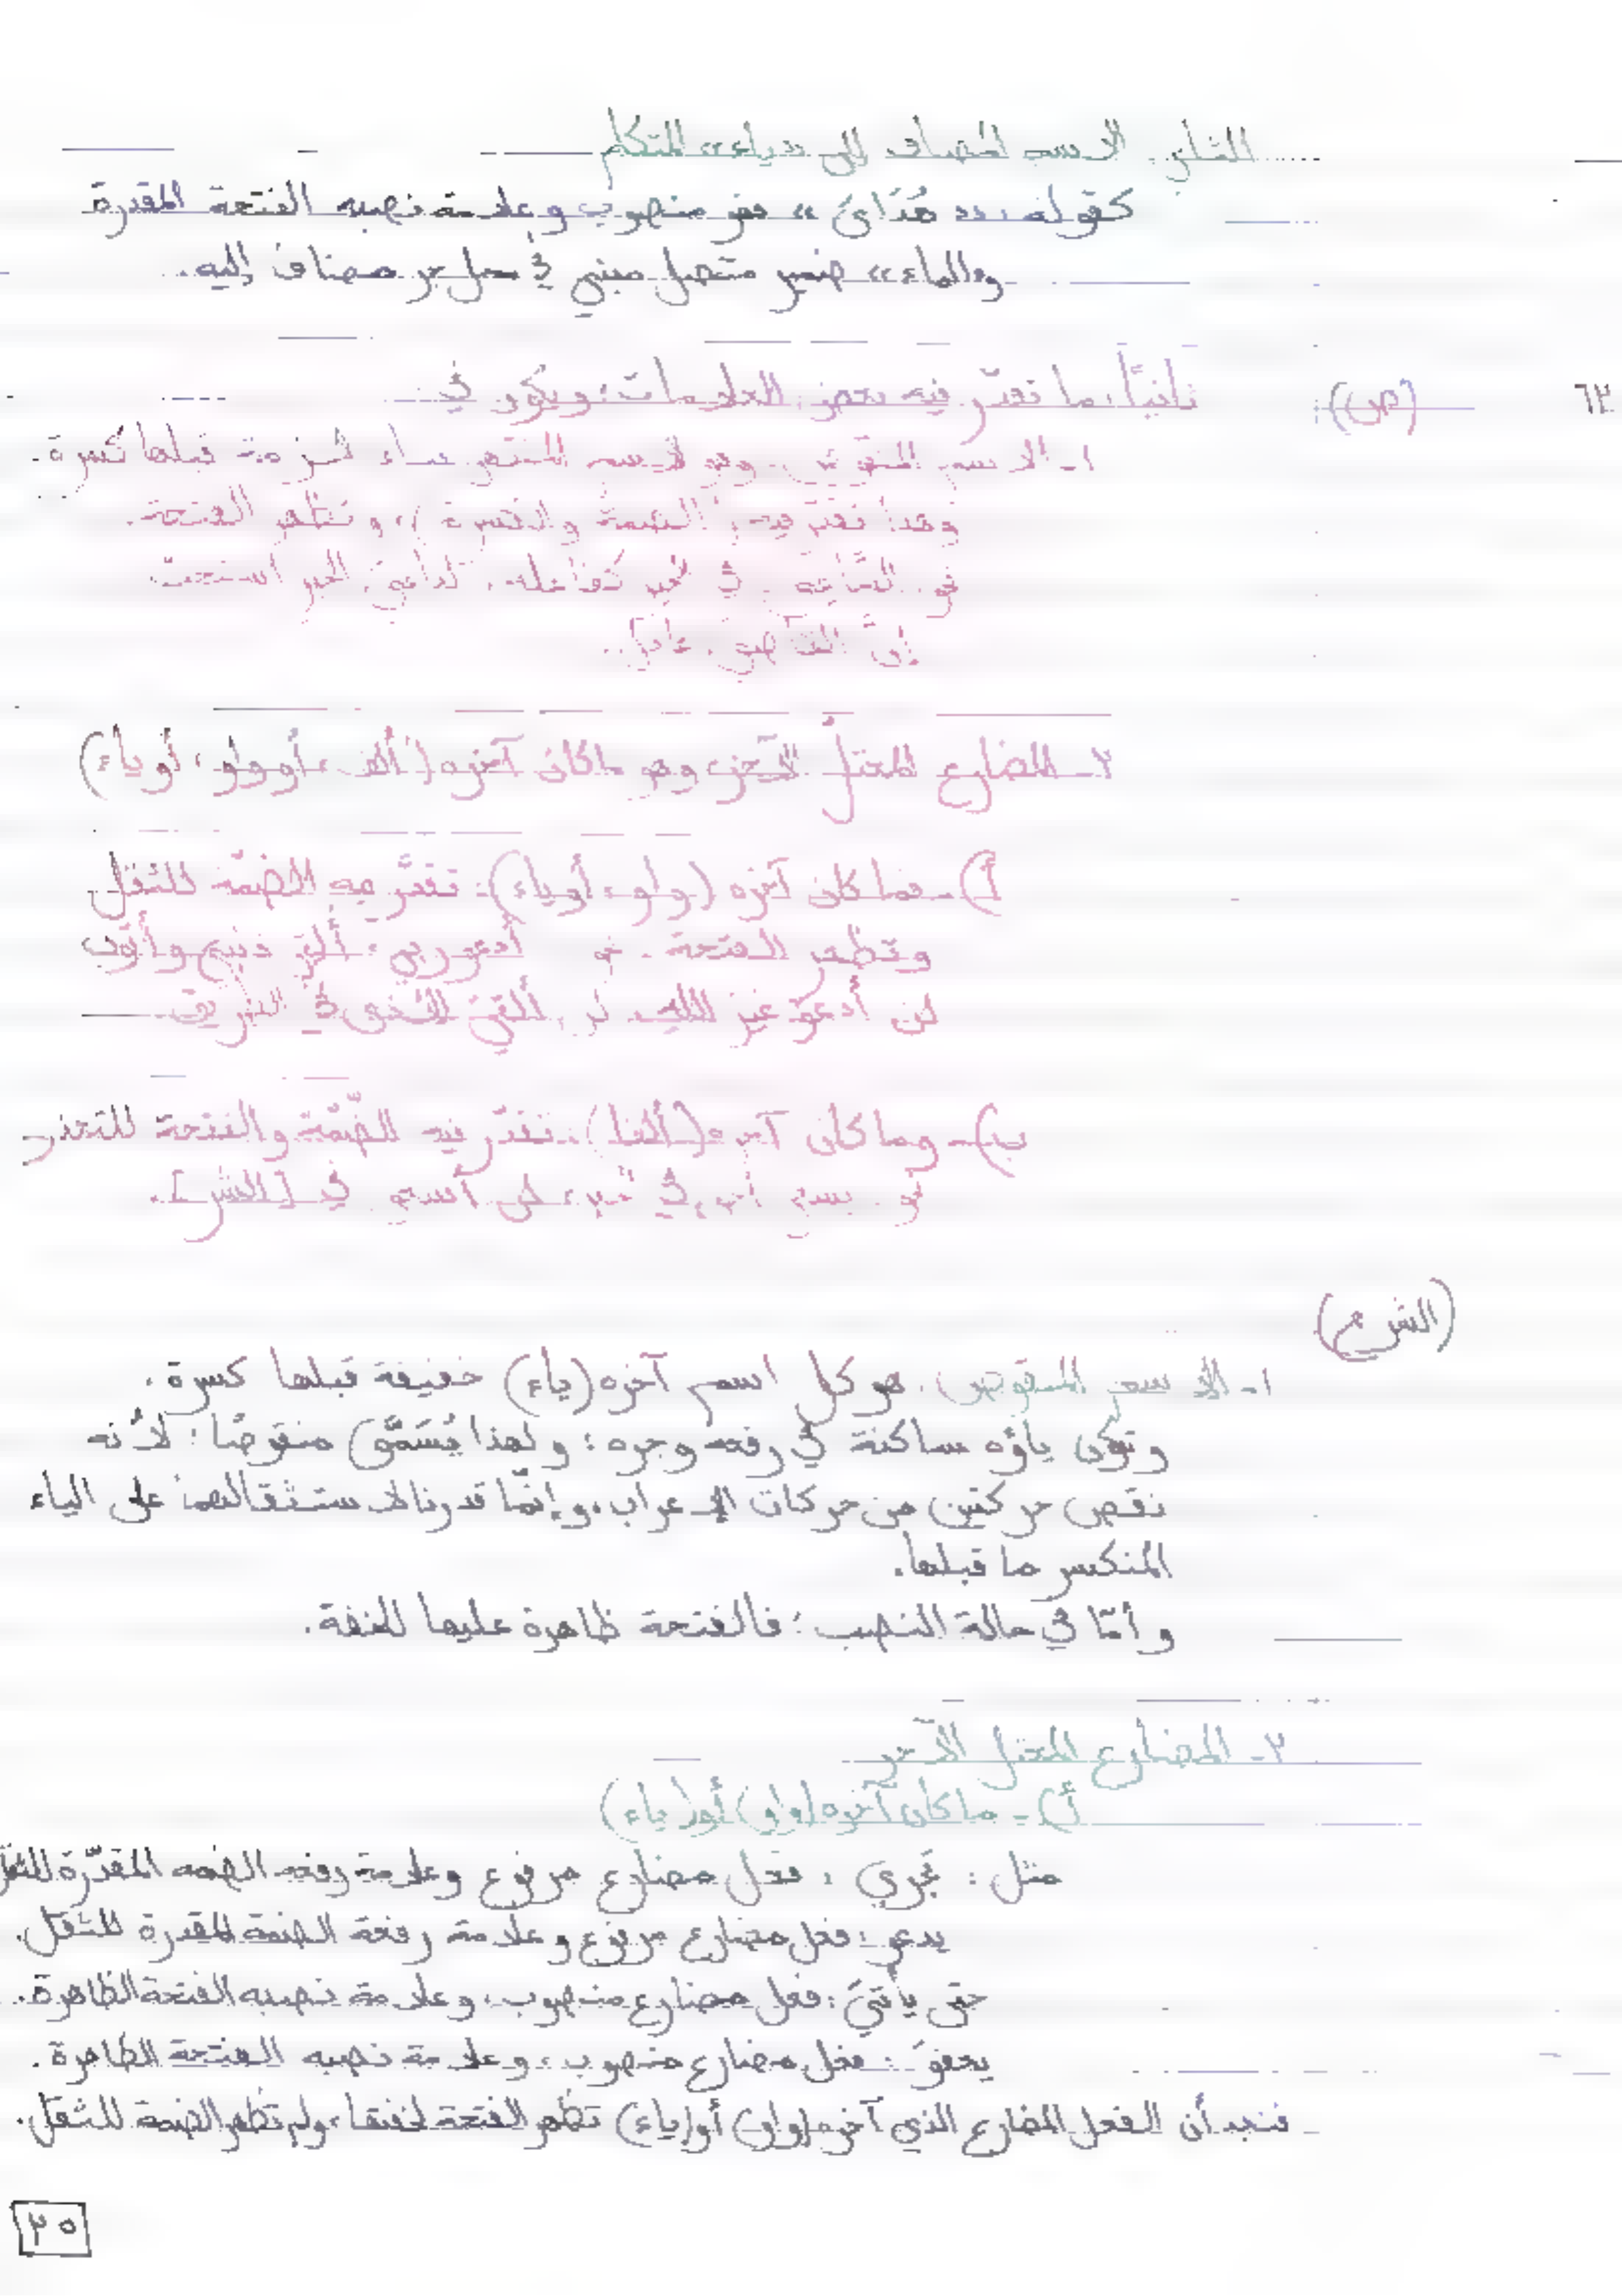 الثاني: الاسم المضاف إلى «ياء» المتكلم
كقوله: «هُدَايَ» فهو منصوب وعلامة نصبه الفتحة المقدرة
و«الياء» ضمير متصل مبني في محل جر مضاف إليه.
٦٣ (ص): ثانيًا: ما تقدّر فيه بعض العلامات؛ ويكون في
١- الاسم المنقوص، وهو الاسم المنتهي بياء لازمة قبلها كسرة.
وهذا تقدّر فيه، الضمة والكسرة، وتظهر الفتحة.
نحو في الخير كفاعله، لداعي الخير
إنَّ القاضيَ
٢- المضارع المعتلّ الآخر، وهو ما كان آخره (ألف، أو واو، أو ياء)
أ)- فما كان آخره (واو، أو ياء): تقدَّر فيه الضمّة للثقل
وتظهر الفتحة. نحو أدعو ربي،
لن أدعوَ غيرَ الله، لن ألقيَ في الطريق
ب)- وما كان آخره (ألفا)، تقدّر فيه الضّمّة والفتحة للتعذر
نحو. في لن في الشر.
(الشرح)
١- الاسم المنقوص، هو كل اسم آخره (ياء) خفيفة قبلها كسرة.
وتكون ياؤه ساكنة في رفعه وجره؛ ولهذا يُسَمَّى منقوصًا؛ لأنه
نقص حركتين من حركات الإعراب، وإنّما قدرنا لاستثقالهما على الياء
المنكسر ما قبلها.
وأمّا في حالة النصب؛ فالفتحة ظاهرة عليها للخفة.
٢- المضارع المعتل الآخر
أ)- ما كان آخره (واو) أو (ياء)
مثل: تجري: فعل مضارع مرفوع وعلامة رفعه الضمه المقدّرة للثقل
يدعو: فعل مضارع مرفوع وعلامة رفعة الضمة المقدرة للثقل.
حتى يأتيَ: فعل مضارع منصوب، وعلامة نصبه الفتحة الظاهرة.
يعفوَ: فعل مضارع منصوب، وعلامة نصبه الفتحة الظاهرة.
فنجد أن الفعل المضارع الذي آخره (واو) أو (ياء) تظهر الفتحة لخفتها، ولم تظهر الضمة للثقل.
٢٥